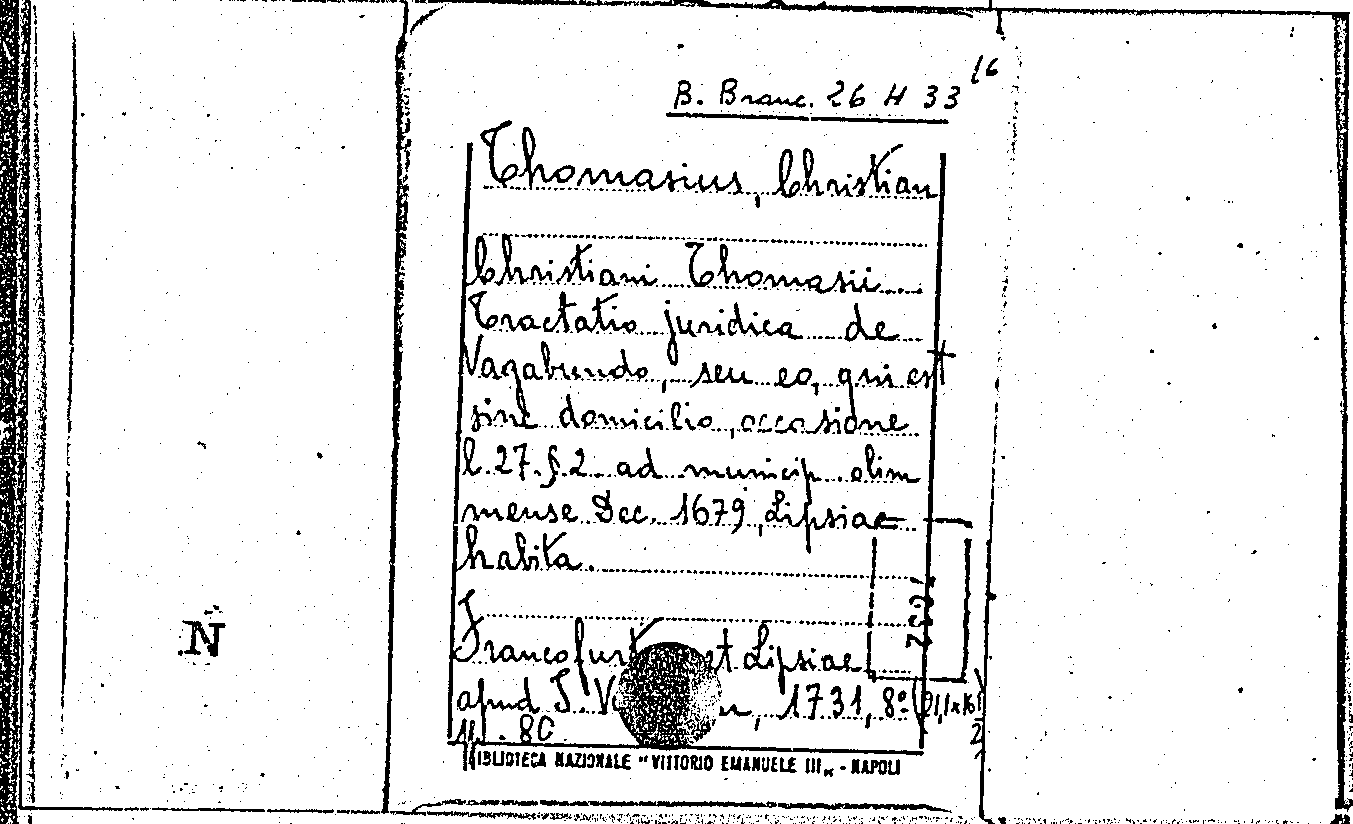 B. Branc. 26 H 33 16
Thomasius, Christian
Christiani Thomasii
Tractatio juridica de
Vagabundo, seu eo, qui est
sine domicilio, occasione
l. 27. § 2 ad municip. olim
mense Dec. 1679, Lipsiae
habita.
Francofurt et Lipsiae
apud J. 1731, 8º
80
BIBLIOTECA NAZIONALE "VITTORIO EMANUELE III„ - NAPOLI
N